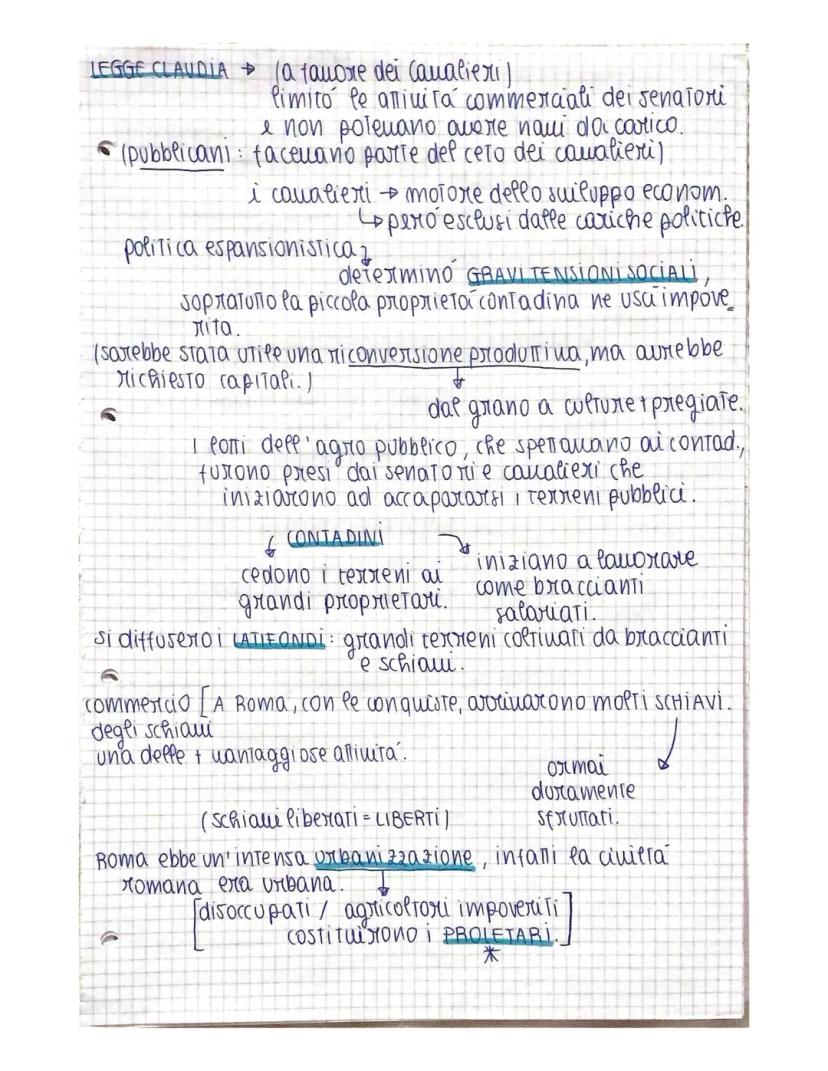 LEGGE CLAUDIA → (a favore dei cavalieri)
limitó le attivitá commerciali dei senatori
e non potevano avere navi da carico.
(pubblicani: facevano parte del ceto dei cavalieri)
i cavalieri → motore dello sviluppo econom.
↳ peró esclusi dalle cariche politiche
politica espansionistica ↴
determinó GRAVI TENSIONI SOCIALI,
sopratutto la piccola proprietá contadina ne uscí impove_
rita.
(sarebbe stata utile una riconversione produttiva, ma avrebbe
richiesto capitali.) ↓
dal grano a culture + pregiate.
I lotti dell'agro pubblico, che spettavano ai contad.,
furono presi dai senatori e cavalieri che
iniziarono ad accapararsi i terreni pubblici.
↙ CONTADINI ↘
cedono i terreni ai
grandi proprietari.
iniziano a lavorare
come braccianti
salariati.
si diffusero i LATIFONDI: grandi terreni coltivati da braccianti
e schiavi.
commercio [A Roma, con le conquiste, arrivarono molti SCHIAVI.
degli schiavi
una delle + vantaggiose attivitá.
ormai
duramente
sfruttati.
(schiavi liberati = LIBERTI)
Roma ebbe un'intensa urbanizzazione, infatti la civiltá
romana era urbana. ↓
[disoccupati / agricoltori impoveriti
costituirono i PROLETARI.]
*